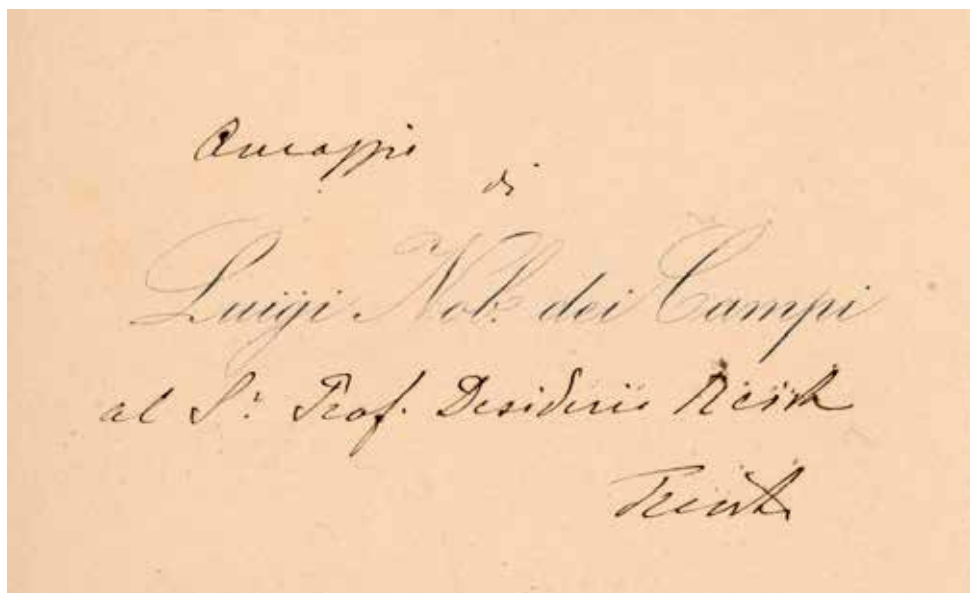 Omaggio
di
Luigi Nob. dei Campi
al Sr. Prof. Desiderio Reich